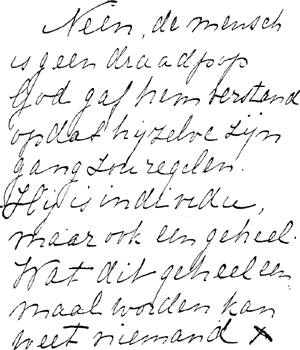 Neen, de mensch
is geen draadpop
God gaf hem verstand
opdat hij zelve zijn
gang zou regelen.
Hij is individu,
maar ook een geheel.
Wat dit geheel een
maal worden kan
weet niemand x